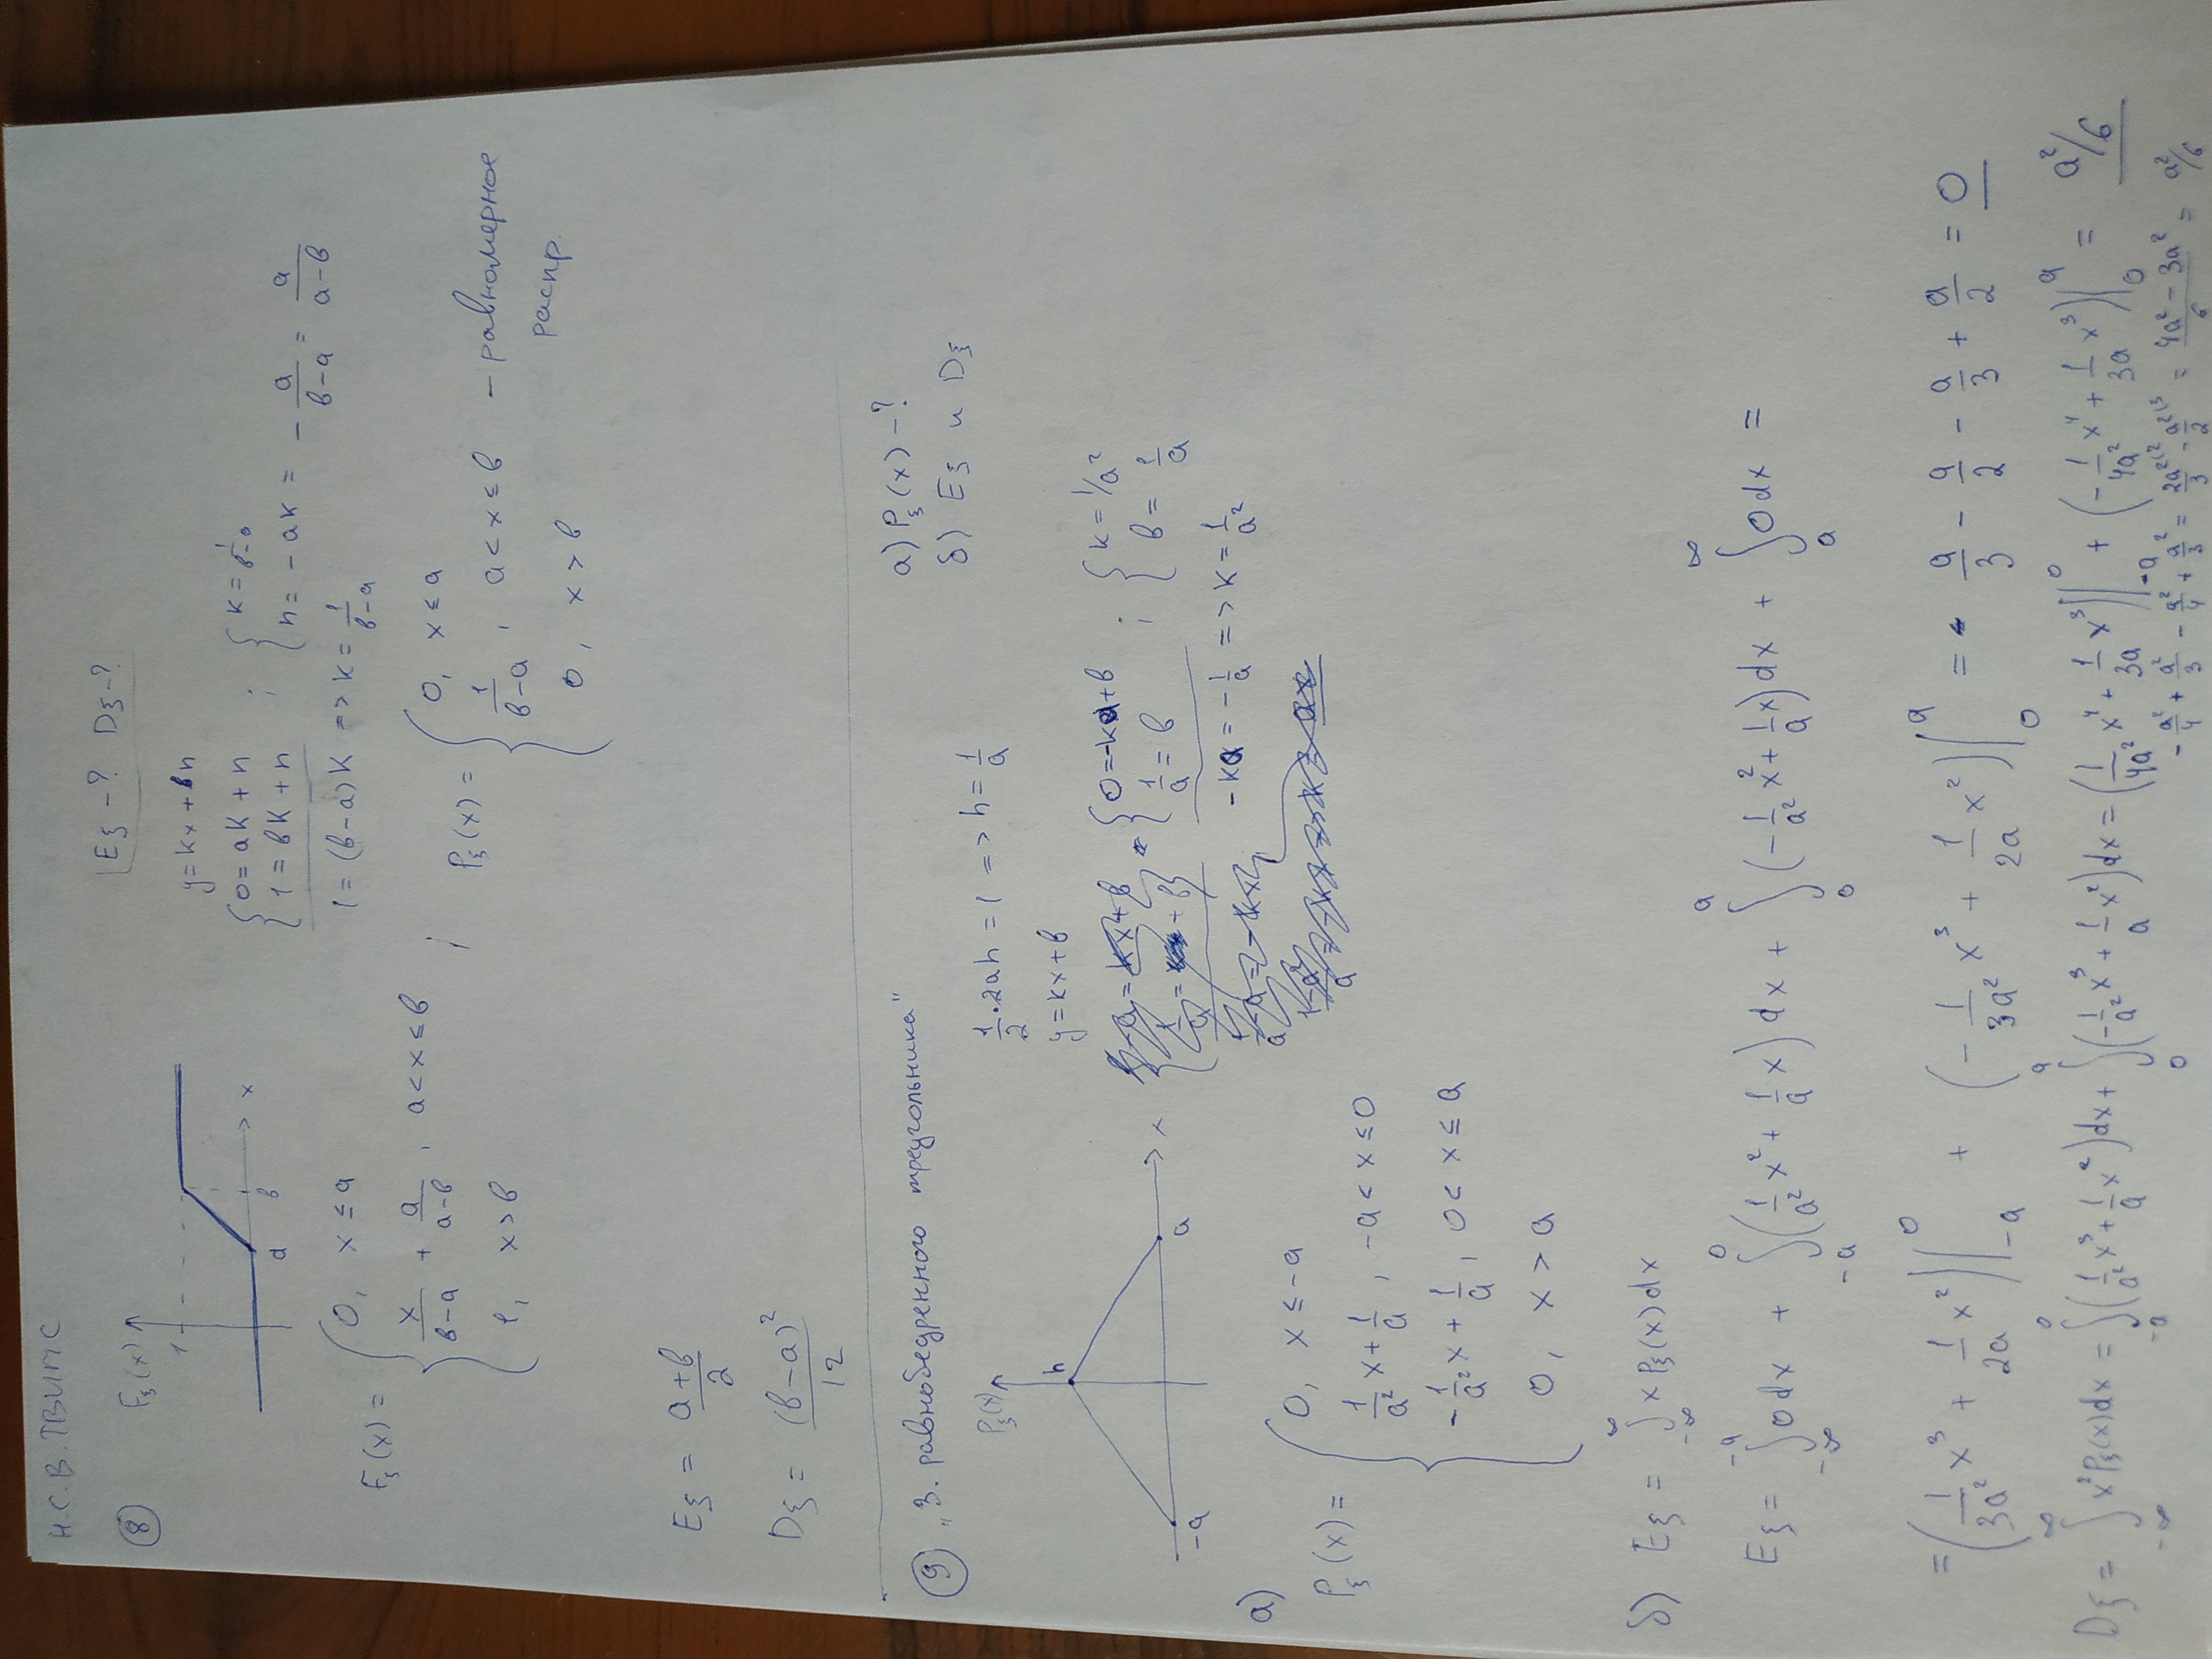 Н.С.В. ТВИМС
Eξ - ? Dξ - ?
⑧
F_ξ(x)
1
a b x
y = kx + n
{ 0 = ak + n ; { k = 1/(b-a)
{ 1 = bk + n { n = -ak = - a/(b-a) = a/(a-b)
1 = (b-a)k => k = 1/(b-a)
F_ξ(x) = { 0, x ≤ a
x/(b-a) + a/(a-b), a < x ≤ b ;
1, x > b
P_ξ(x) = { 0, x ≤ a
1/(b-a), a < x ≤ b - равномерное распр.
0, x > b
Eξ = (a+b)/2
Dξ = (b-a)²/12
⑨ „З. равнобедренного треугольника"
а) P_ξ(x) - ?
б) Eξ и Dξ
P_ξ(x)
h
-a a x
1/2 · 2ah = 1 => h = 1/a
y = kx + b
{ 0 = -ka + b ; { k = 1/a²
{ 1/a = b { b = 1/a
-ka = -1/a => k = 1/a²
а)
P_ξ(x) = { 0, x ≤ -a
1/a² x + 1/a, -a < x ≤ 0
-1/a² x + 1/a, 0 < x ≤ a
0, x > a
б) Eξ = ∫_{-∞}^{∞} x P_ξ(x) dx
Eξ = ∫_{-∞}^{-a} 0 dx + ∫_{-a}^{0} (1/a² x² + 1/a x) dx + ∫_{0}^{a} (-1/a² x² + 1/a x) dx + ∫_{a}^{∞} 0 dx =
= (1/(3a²) x³ + 1/(2a) x²)|_{-a}^{0} + (-1/(3a²) x³ + 1/(2a) x²)|_{0}^{a} = a/3 - a/2 - a/3 + a/2 = 0
Dξ = ∫_{-∞}^{∞} x² P_ξ(x) dx = ∫_{-a}^{0} (1/a² x³ + 1/a x²) dx + ∫_{0}^{a} (-1/a² x³ + 1/a x²) dx = (1/(4a²) x⁴ + 1/(3a) x³)|_{-a}^{0} + (-1/(4a²) x⁴ + 1/(3a) x³)|_{0}^{a} = a²/6
-a²/4 + a²/3 - a²/4 + a²/3 = 2a²⁽²/3 - a²⁽³/2 = (4a² - 3a²)/6 = a²/6